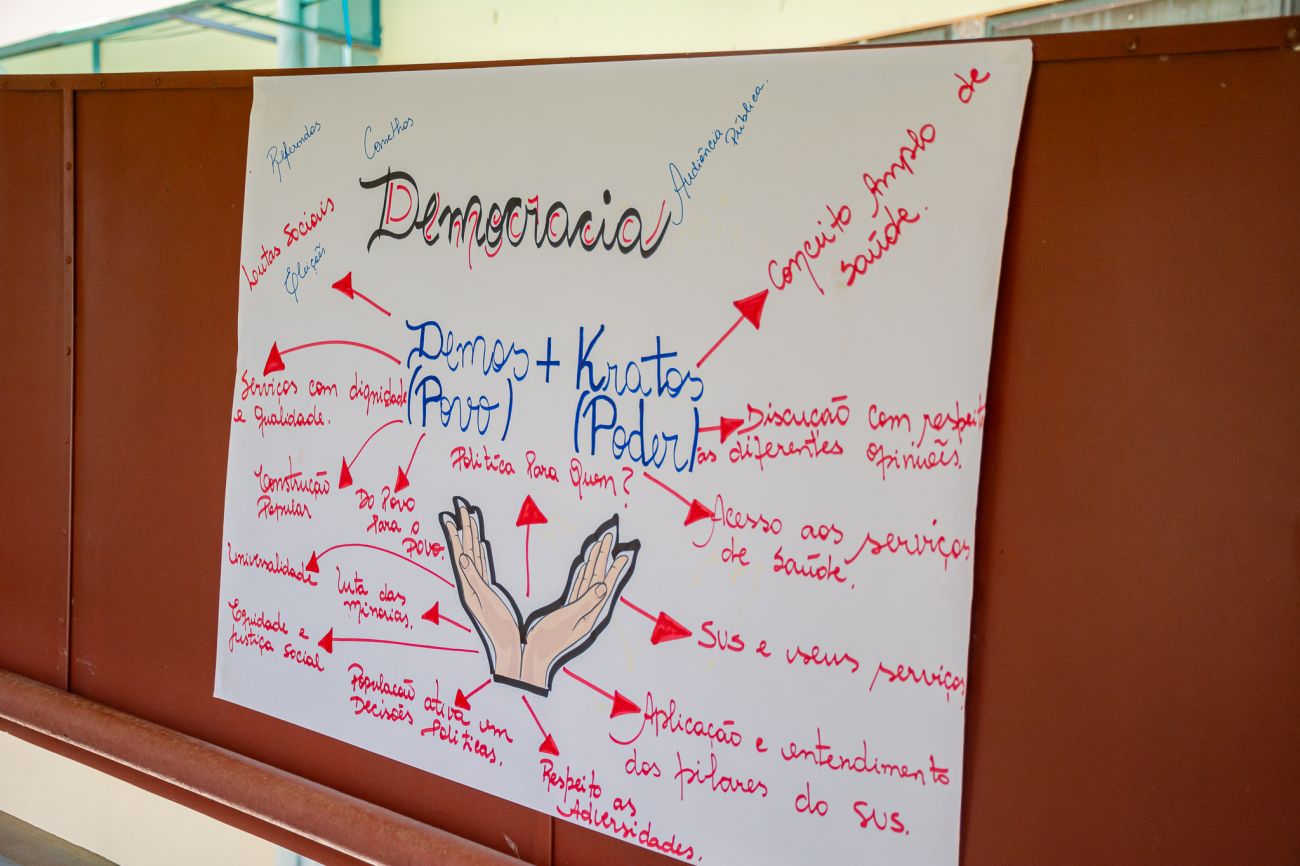 Referendos
Conselhos
Audiência
Pública.
Democracia
Lutas Sociais
Eleições
Conceito Amplo de
Saúde.
Demos + Kratos
(Povo) (Poder)
Serviços com dignidade
e qualidade.
Discução com respeito
às diferentes opiniões.
Construção
Popular
Do Povo
Para o
Povo.
Política Para Quem?
Acesso aos serviços
de Saúde.
Universalidade
Luta das
Minorias.
Equidade e
justiça social
SUS e seus serviços
População ativa em
Decisões
Políticas.
Respeito as
Adversidades.
Aplicação e entendimento
dos pilares do SUS.